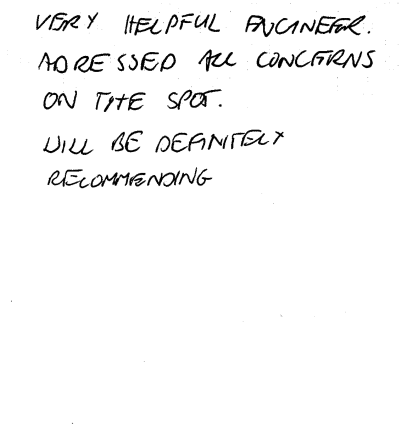 VERY HELPFUL ENGINEER.
ADRESSED ALL CONCERNS
ON THE SPOT.
WILL BE DEFINITELY
RECOMMENDING